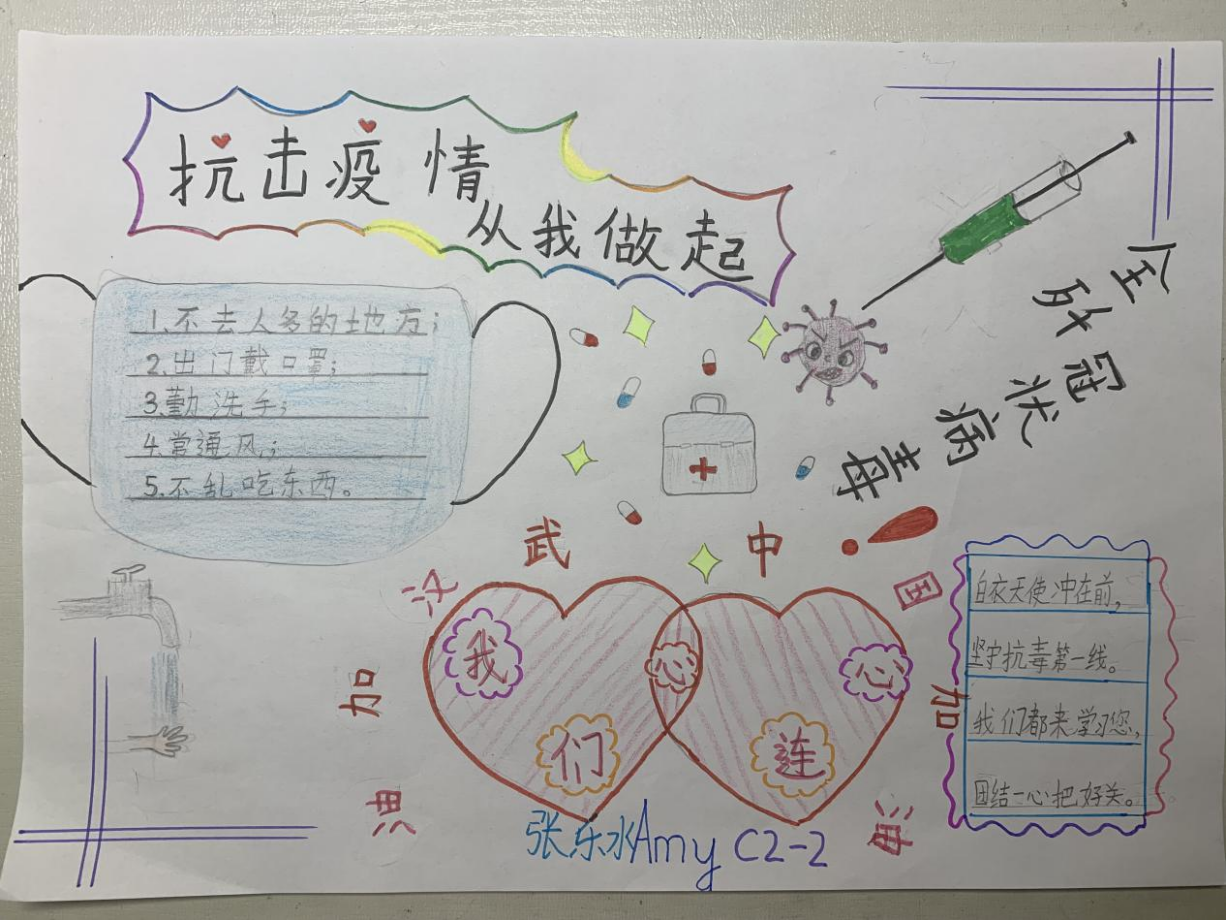 抗击疫情
从我做起
1.不去人多的地方；
2.出门戴口罩；
3.勤洗手；
4.常通风；
5.不乱吃东西。
全歼冠状病毒！
武汉加油
中国加油
我们心连心
白衣天使冲在前，
坚守抗毒第一线。
我们都来学习您，
团结一心把好关。
张乐水Amy C2-2